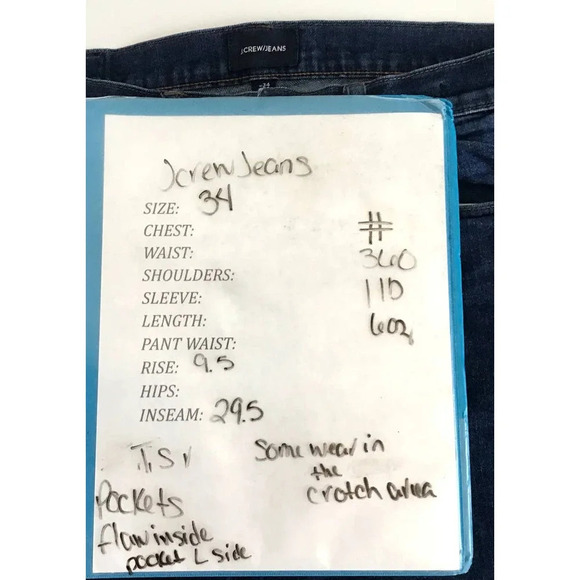 J.CREW/JEANS
34
Jcrew Jeans
SIZE: 34
CHEST: #
WAIST: 360
SHOULDERS: 11D
SLEEVE:
LENGTH: 602
PANT WAIST:
RISE: 9.5
HIPS:
INSEAM: 29.5
Some wear in
the
crotch area
Pockets
flaw inside
pocket L side